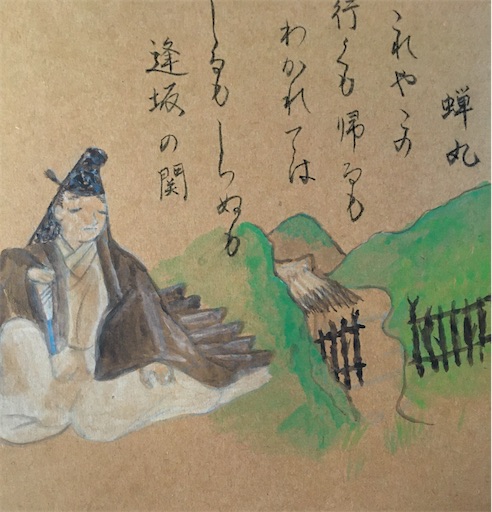 蝉丸
これやこの
行くも帰るも
わかれては
しるもしらぬも
逢坂の関